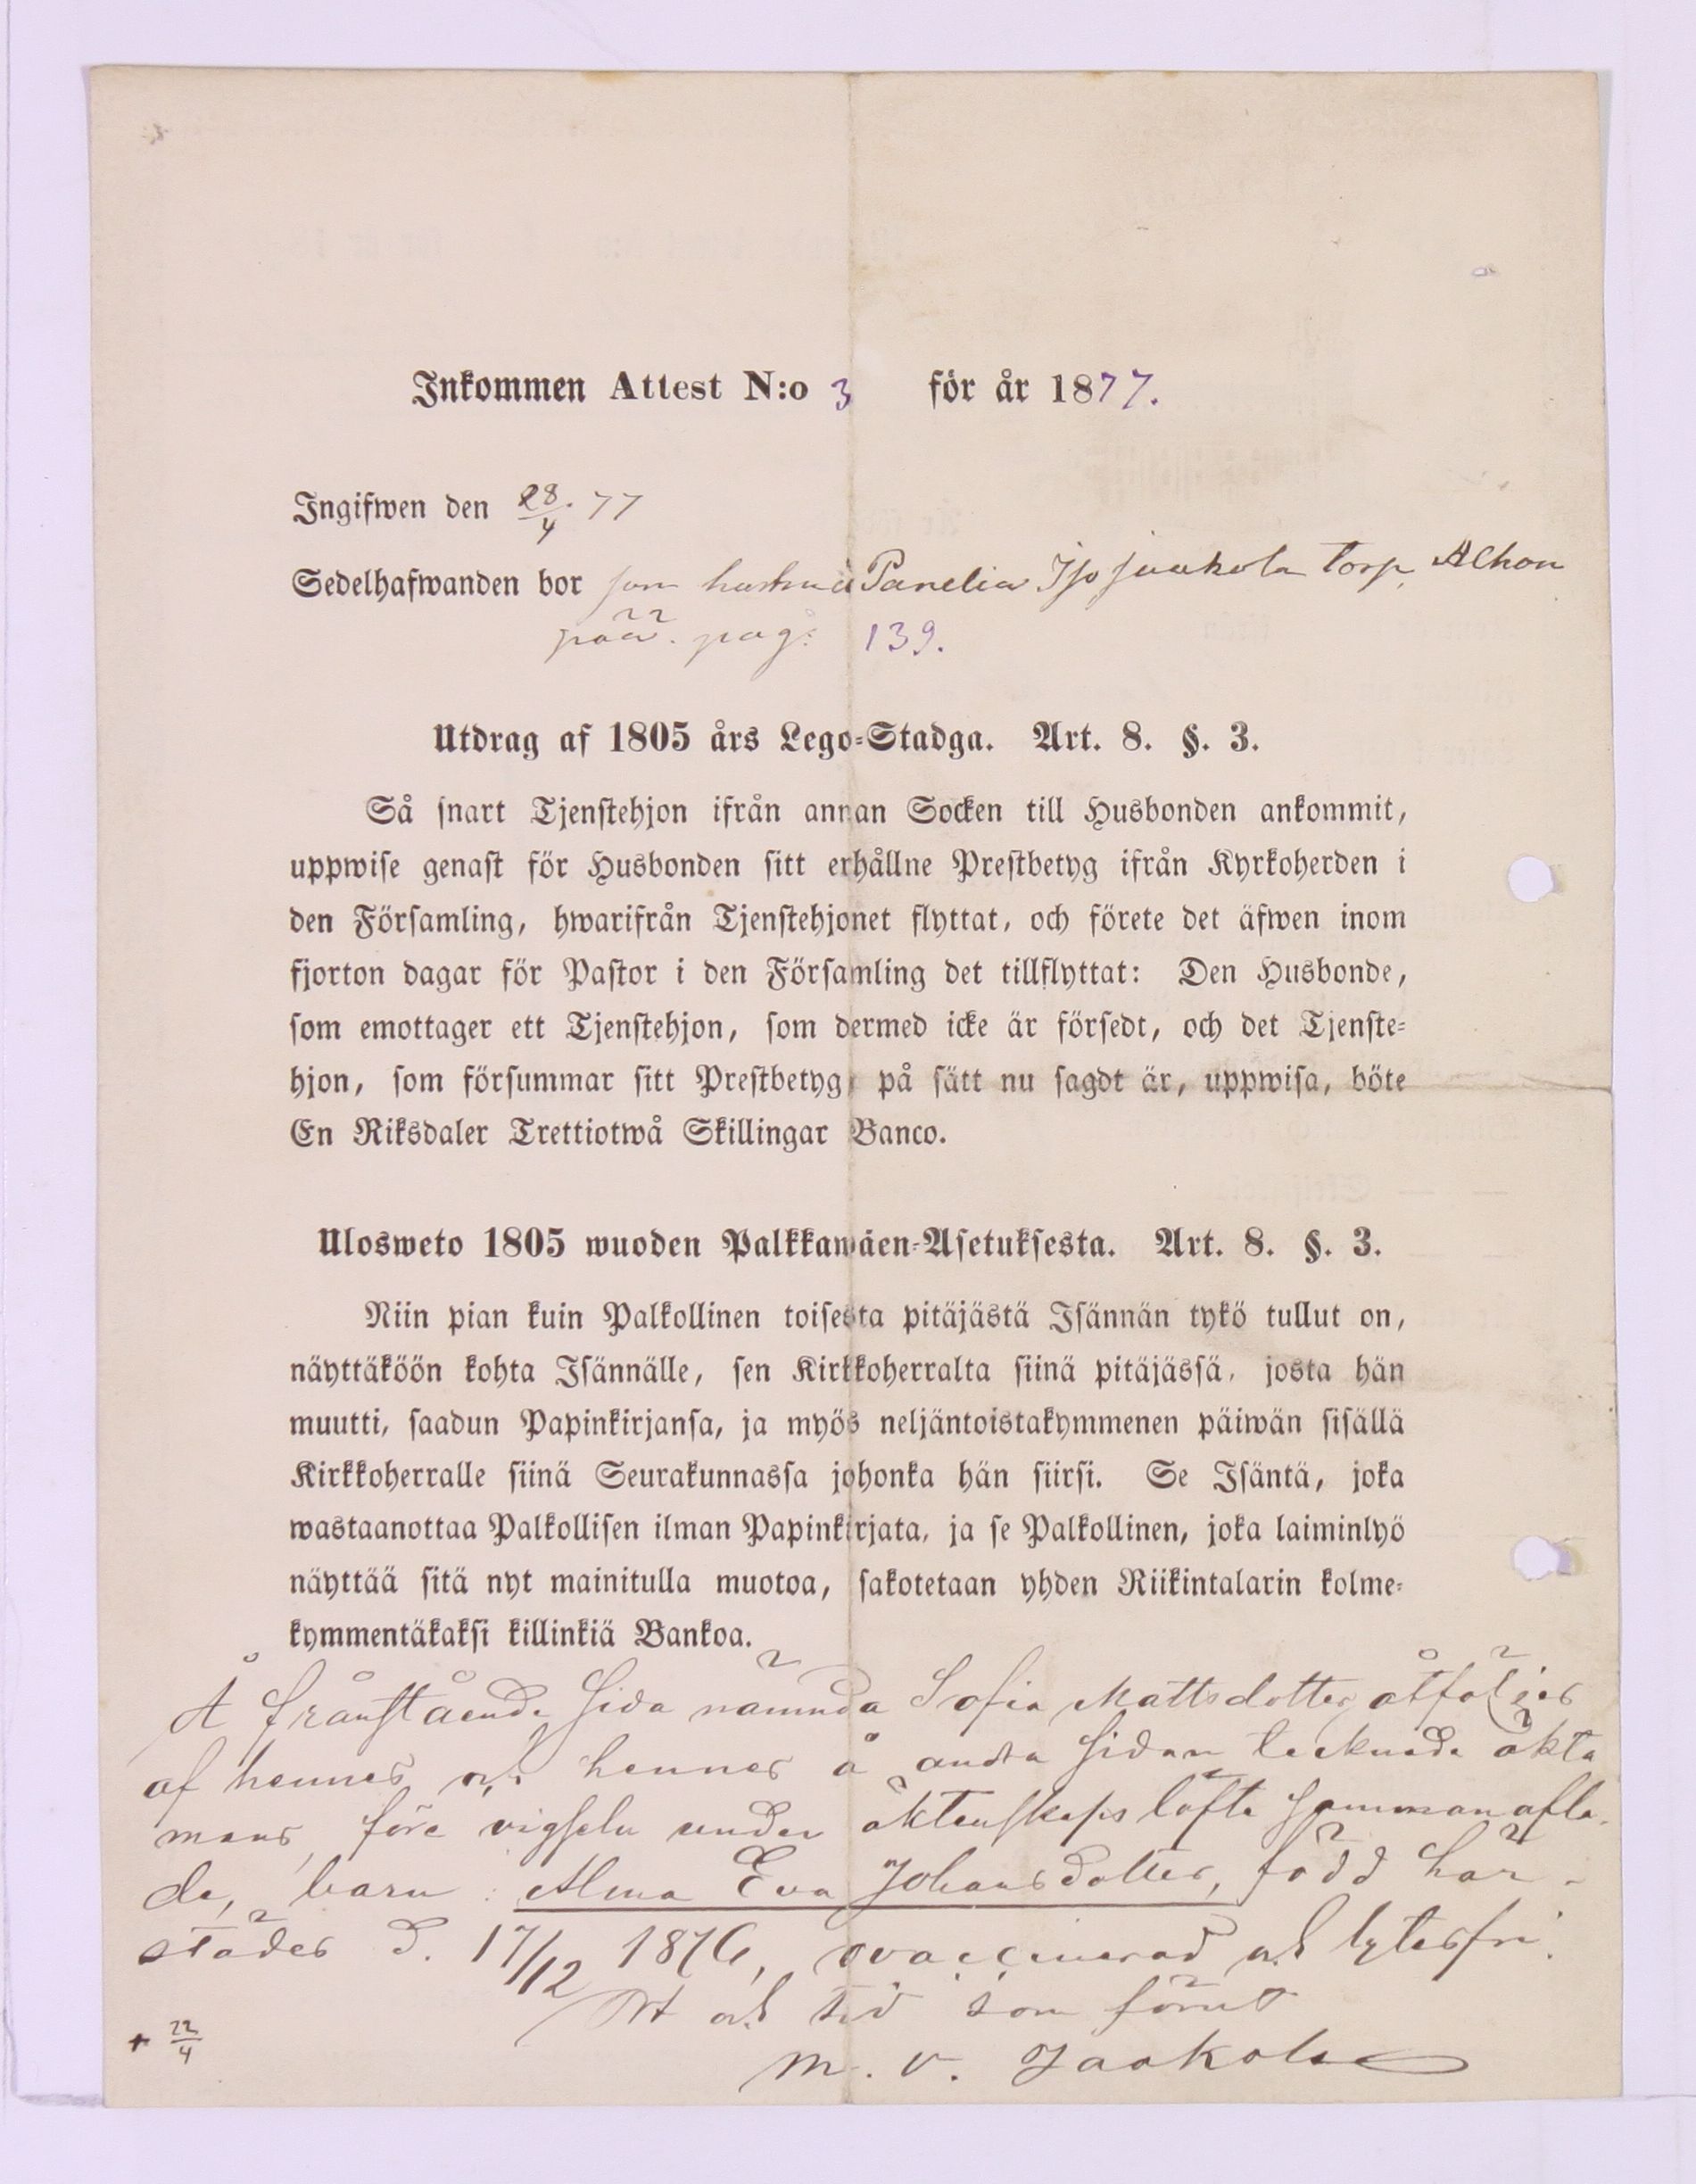 Inkommen Attest N:o 3 för år 1877.
Ingifwen den 28/4. 77
Sedelhafwanden bor som hustru à Panelia Iso Juakola torp, Alhon
pää. pag: 139.
Utdrag af 1805 års Lego-Stadga. Art. 8. §. 3.
Så snart Tjenstehjon ifrån annan Socken till Husbonden ankommit,
uppwise genast för Husbonden sitt erhållne Prestbetyg ifrån Kyrkoherden i
den Församling, hwarifrån Tjenstehjonet flyttat, och förete det äfwen inom
fjorton dagar för Pastor i den Församling det tillflyttat: Den Husbonde,
som emottager ett Tjenstehjon, som dermed icke är försedt, och det Tjenste-
hjon, som försummar sitt Prestbetyg, på sätt nu sagdt är, uppwisa, böte
En Riksdaler Trettiotwå Skillingar Banco.
Ulosweto 1805 wuoden Palkkawäen-Asetuksesta. Art. 8. §. 3.
Niin pian kuin Palkollinen toisesta pitäjästä Isännän tykö tullut on,
näyttäköön kohta Isännälle, sen Kirkkoherralta siinä pitäjässä, josta hän
muutti, saadun Papinkirjansa, ja myös neljäntoistakymmenen päiwän sisällä
Kirkkoherralle siinä Seurakunnassa johonka hän siirsi. Se Isäntä, joka
wastaanottaa Palkollisen ilman Papinkirjata, ja se Palkollinen, joka laiminlyö
näyttää sitä nyt mainitulla muotoa, sakotetaan yhden Riikintalarin kolme-
kymmentäkaksi killinkiä Bankoa.
Å frånstående sida nämnda Sofia Mattsdotter åtföljes
af hennes och hennes å andra sidan tecknade äkta
mans, före vigseln under äktenskaps löfte sammanafla-
de, barn: Alma Eva Johansdotter, född här-
städes d. 17/12 1876, ovaccinerad och lytesfri.
Ort och tid som förut
M. V. Jaakola
+ 22/4